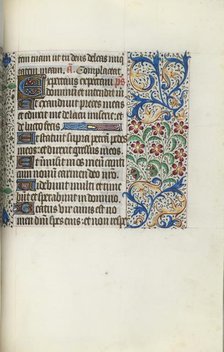 tem tuam ut tu deus deleas iniq
tatem meam. a. Complaceat
Expectans expectaui ps
dominum
Et exaudiuit preces meas
et eduxit me de lacu miserie et
de luto fecis
Et statuit supra petram pedes
meos et direxit gressus meos
Et inmisit in os meum canti
cum nouum carmen deo nro
Videbunt multi et timeb
unt et sperabunt in domino
Beatus vir cuius est no
men dni spes eius et non respex